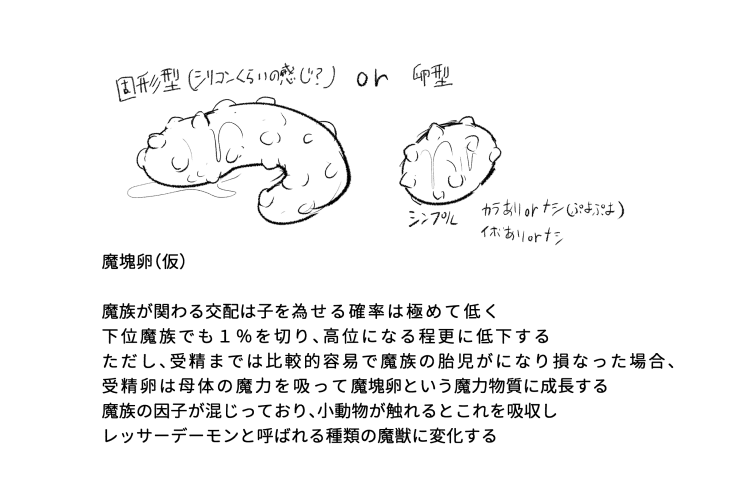 固形型(シリコンくらいの感じ?) or 卵型
シンプル
カラありorナシ(ぷよぷよ)
イボありorナシ
魔塊卵(仮)
魔族が関わる交配は子を為せる確率は極めて低く
下位魔族でも1%を切り、高位になる程更に低下する
ただし、受精までは比較的容易で魔族の胎児がになり損なった場合、
受精卵は母体の魔力を吸って魔塊卵という魔力物質に成長する
魔族の因子が混じっており、小動物が触れるとこれを吸収し
レッサーデーモンと呼ばれる種類の魔獣に変化する